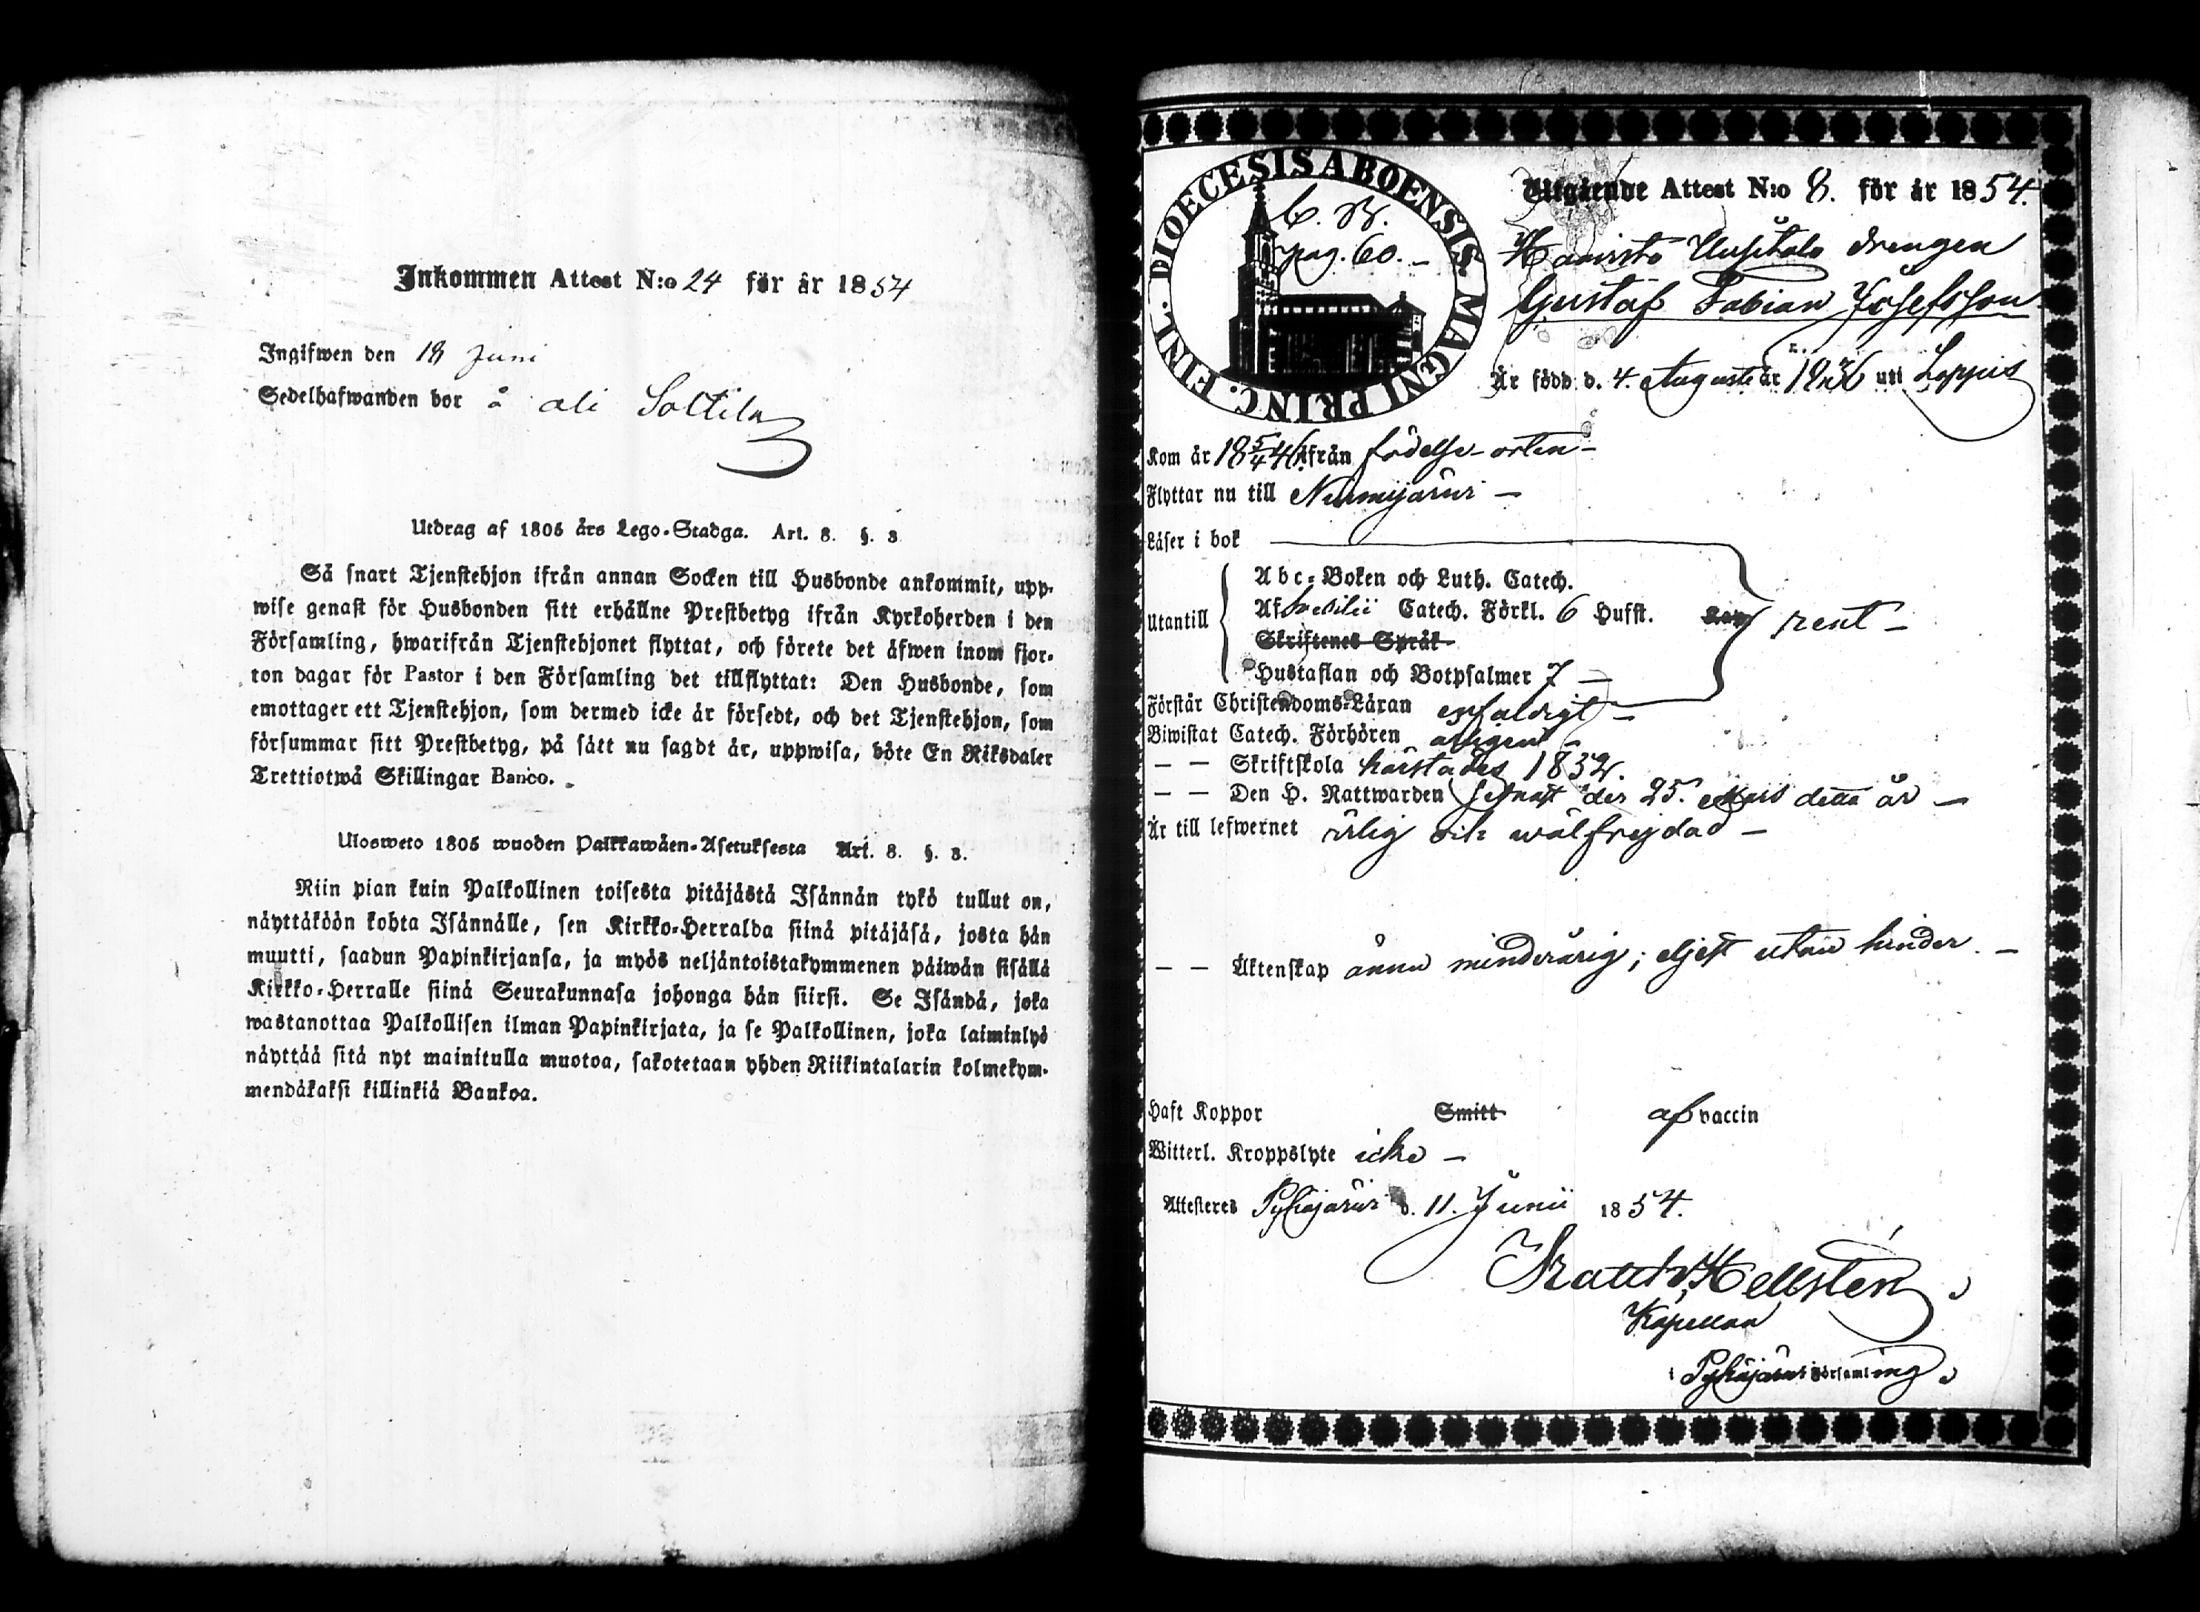 Inkommen Attest N:o 24 för år 1854
Ingifwen den 18 Juni
Sedelhafwanden bor å ali Soltila
Utdrag af 1805 års Lego-Stadga. Art. 8. §. 3
Så snart Tjenstehjon ifrån annan Socken till Husbonde ankommit, upp-
wise genast för Husbonden sitt erhållne Prestbetyg ifrån Kyrkoherden i den
Församling, hwarifrån Tjenstehjonet flyttat, och förete det äfwen inom fjor-
ton dagar för Pastor i den Församling det tillflyttat: Den Husbonde, som
emottager ett Tjenstehjon, som dermed icke är försedt, och det Tjenstehjon, som
försummar sitt Prestbetyg, på sätt nu sagdt är, uppwisa, böte En Riksdaler
Trettiotwå Skillingar Banco.
Ulosweto 1805 wuoden Palkkawäen-Asetuksesta Art. 8. §. 3.
Niin pian kuin Palkollinen toisesta pitäjästä Isännän tykö tullut on,
näyttäköön kohta Isännälle, sen Kirkko-Herralda siinä pitäjäsä, josta hän
muutti, saadun Papinkirjansa, ja myös neljäntoistakymmenen päiwän sisällä
Kirkko-Herralle siinä Seurakunnasa johonga hän siirsi. Se Isändä, joka
wastanottaa Palkollisen ilman Papinkirjata, ja se Palkollinen, joka laiminlyö
näyttää sitä nyt mainitulla muotoa, sakotetaan yhden Riikintalarin kolmekym-
mendäkaksi killinkiä Bankoa.
DIOECESIS ABOENSIS MAGNI PRINC. FINL.
C. B.
pag. 60.
Utgående Attest N:o 8. för år 1854.
Haavisto Uusitalo drengen
Gustaf Fabian Josefsson
Är född d. 4. Augusti år 1836 uti Loppis
Kom år 18 5/4 46 ifrån födelse-orten
Flyttar nu till Nurmijärvi
Läser i bok
Utantill
Abc-Boken och Luth. Catech.
Af Svebilii Catech. Förkl. 6 Hufst. rent
Skriftenes Språk
Hustaflan och Botpsalmer 7
Förstår Christendoms-Läran enfaldigt
Biwistat Catech. Förhören
— — Skriftskola 1852.
— — Den H. Nattwarden senast den 25. Maii detta år
Är till lefwernet ärlig och wälfrejdad
— — Äktenskap ännu minderårig; eljest utan hinder.
Haft Koppor Smitt af vaccin
Witterl. Kroppslyte icke
Attesteras Pyhäjärvi d. 11. Junii 1854.
Hellstén
Kapellan
i Pyhäjärvi Församling